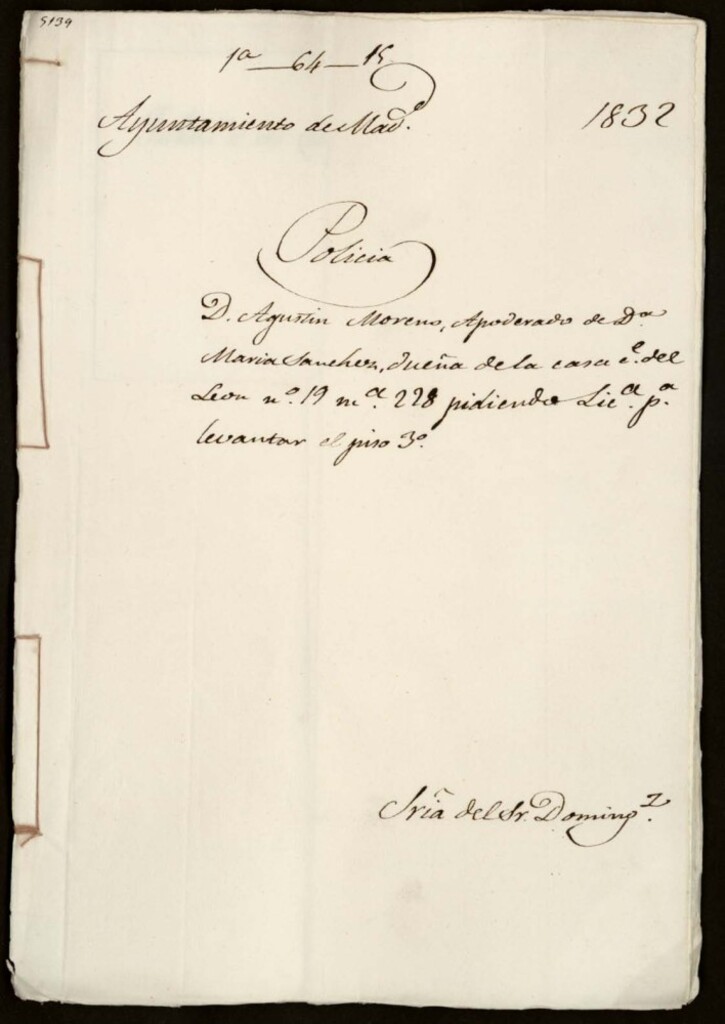 5139
1ª — 64 — 15
Ayuntamiento de Madᵈ.
1832
Policia
D. Agustin Moreno, Apoderado de Dª
Maria Sanchez, dueña de la casa c.ᵉ del
Leon nº. 19 mª. 228 pidiendo Licª. pª.
levantar el piso 3º.
Sria del Sr. Domingᶻ.